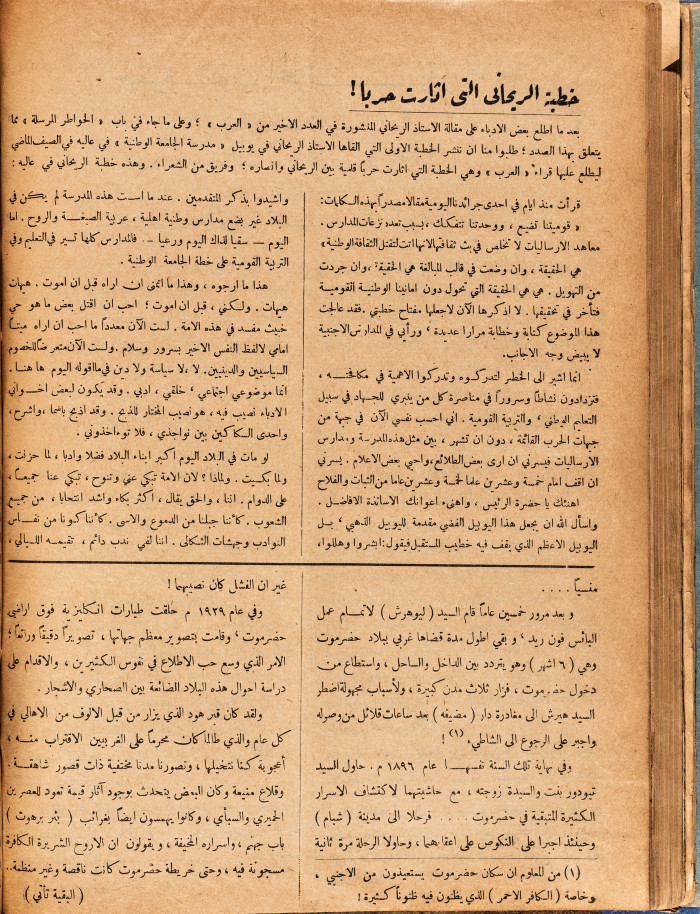 خطبة الريحاني التي اثارت حربا !
بعد ما اطلع بعض الادباء على مقالة الاستاذ الريحاني المنشورة في العدد الاخير من « العرب » ؛ وعلى ما جاء في باب « الخواطر المرسلة » مما
يتعلق بهذا الصدد ؛ طلبوا منا ان ننشر الخطبة الاولى التي القاها الاستاذ الريحاني في يوبيل « مدرسة الجامعة الوطنية » في عاليه في الصيف الماضي
ليطلع عليها قراء « العرب » وهي الخطبة التي اثارت حربا قلمية بين الريحاني وانصاره ؛ وفريق من الشعراء . وهذه خطبة الريحاني في عاليه :
قرأت منذ ايام في احدى جرائدنا اليومية مقالا مصدراً بهذه الكلمات :
« قوميتنا تضيع ، ووحدتنا تتفكك ، بسبب تعدد نزعات المدارس .
معاهد الارساليات لا تخلص في بث ثقافتها لانها اتت لتقتل الثقافة الوطنية »
هي الحقيقة ، وان وضعت في قالب المبالغة هي الحقيقة ، وان جردت
من التهويل . هي هي الحقيقة التي تحول دون امانينا الوطنية القومية
فتأخر في تحقيقها . لا اذكرها الآن لاجعلها مفتاح خطبتي . فقد عالجت
هذا الموضوع كتابة وخطابة مرارا عديدة ؛ ورأيي في المدارس الاجنبية
لا يبيض وجه الاجانب .
انما اشير الى الخطر لتدركوه وتدركوا الاهمية في مكافحته ،
فتزدادون نشاطاً وسروراً في مناصرة كل من ينبري للجهاد في سبيل
التعليم الوطني ؛ والتربية القومية . اني احسب نفسي الآن في جهة من
جبهات الحرب القائمة ، دون ان تشهر ، بين مثل هذه المدرسة ومدارس
الارساليات فيسرني ان ارى بعض الطلائع ، واحيي بعض الاعلام . يسرني
ان اقف امام خمسة وعشرين علما لخمسة وعشرين عاما من الثبات والفلاح
اهنئك يا حضرة الرئيس ، واهنىء اعوانك الاساتذة الافاضل .
واسأل الله ان يجعل هذا اليوبيل الفضي مقدمة لليوبيل الذهبي ؛ بل
اليوبيل الاعظم الذي يقف فيه خطيب المستقبل فيقول : ابشروا وهللوا ،
واشيدوا بذكر المتقدمين . عند ما است هذه المدرسة لم يكن في
البلاد غير بضع مدارس وطنية اهلية ، عربية الصبغة والروح . اما
اليوم — سقيا لذاك اليوم ورعيا — . فالمدارس كلها تسير في التعليم وفي
التربية القومية على خطة الجامعة الوطنية .
هذا ما ارجوه ، وهذا ما اتمنى ان اراه قبل ان اموت . هيهات
هيهات . ولكني ، قبل ان اموت ؛ احب ان اقتل بعض ما هو حي
خبيث مفسد في هذه الامة . لست الآن معدداً ما احب ان اراه ميتاً
امامي لالفظ النفس الاخير بسرور وسلام . ولست الآن متعرضاً للخصوم
السياسيين والدينيين . لا ، لا سياسة ولا دين في ما اقوله اليوم ها هنا .
انما موضوعي اجتماعي ؛ خلقي ، ادبي . وقد يكون لبعض اخواني
الادباء نصيب فيه ، هو نصيب المختار للذبح . وقد اذبح باسما ، واشرح ،
واحدى السكاكين بين نواجذي ، فلا تؤاخذوني .
لو مات في البلاد اليوم اكبر ابناء البلاد فضلا وادبا ، لما حزنت ،
ولما بكيت . ولماذا ؟ لان الامة تبكي عني وتنوح ، تبكي عنا جميعاً ،
على الدوام . اننا ، والحق يقال ، اكثر بكاء واشد انتحابا ، من جميع
الشعوب . كأننا جبلنا من الدموع والاسى . كأننا كونا من نفاس
النوادب وجهشات الثكالى . اننا لفي ندب دائم ، تقيمه الليالي ،
مفسياً . . . .
و بعد مرور خمسين عاماً قام السيد ( ليوهرش ) لاتمام عمل
البائس فون ريد ؛ و بقي اطول مدة قضاها غربي ببلاد حضرموت
وهي ( ٦ اشهر ) وهو يتردد بين الداخل والساحل ، واستطاع من
دخول حضرموت ، فزار ثلاث مدن كبيرة ، ولأسباب مجهولة اضطر
السيد هيرش الى مغادرة دار ( مضيفه ) بعد ساعات قلائل من وصوله
واجبر على الرجوع الى الشاطيء (١) !
وفي نهاية تلك السنة نفسها عام ١٨٩٦ م . حاول السيد
تيودور بنت والسيدة زوجته ، مع حاشيتهما لاكتشاف الاسرار
الكثيرة المتبقية في حضرموت .... فرحلا الى مدينة ( شبام )
وحينئذ اجبرا على النكوص على اعقابهما ، وحاولا الرحلة مرة ثانية
(١) من المعلوم ان سكان حضرموت يستعيذون من الاجنبي ،
وخاصة ( الكافر الاحمر ) الذي يظنون فيه ظنوناً كثيرة !
غير ان الفشل كان نصيبهما !
وفي عام ١٩٢٩ م حلقت طيارات انكليزية فوق اراضي
حضرموت ؛ وقامت بتصوير معظم جهاتها ، تصويراً دقيقاً ورائعاً ؛
الامر الذي وسع حب الاطلاع في نفوس الكثيرين ، والاقدام على
دراسة احوال هذه البلاد الضائعة بين الصحاري والاشجار .
ولقد كان قبر هود الذي يزار من قبل الالوف من الاهالي في
كل عام والذي طالما كان محرماً على الغربيين الاقتراب منه ،
أعجوبة كنا نتخيلها ، وتصورنا مدنا مختفية ذات قصور شاهقة .
وقلاع منيعة وكان البعض يتحدث بوجود آثار قيمة تعود للعصرين
الحميري والسبأي ، وكانوا يهمسون ايضاً بغرائب ( بئر برهوت )
باب جهنم ، واسراره المخيفة ، ويقولون ان الاروح الشريرة الكافرة
مسجونة فيه ، وحتى خريطة حضرموت كانت ناقصة وغير منظمة..
( البقية تأتي )